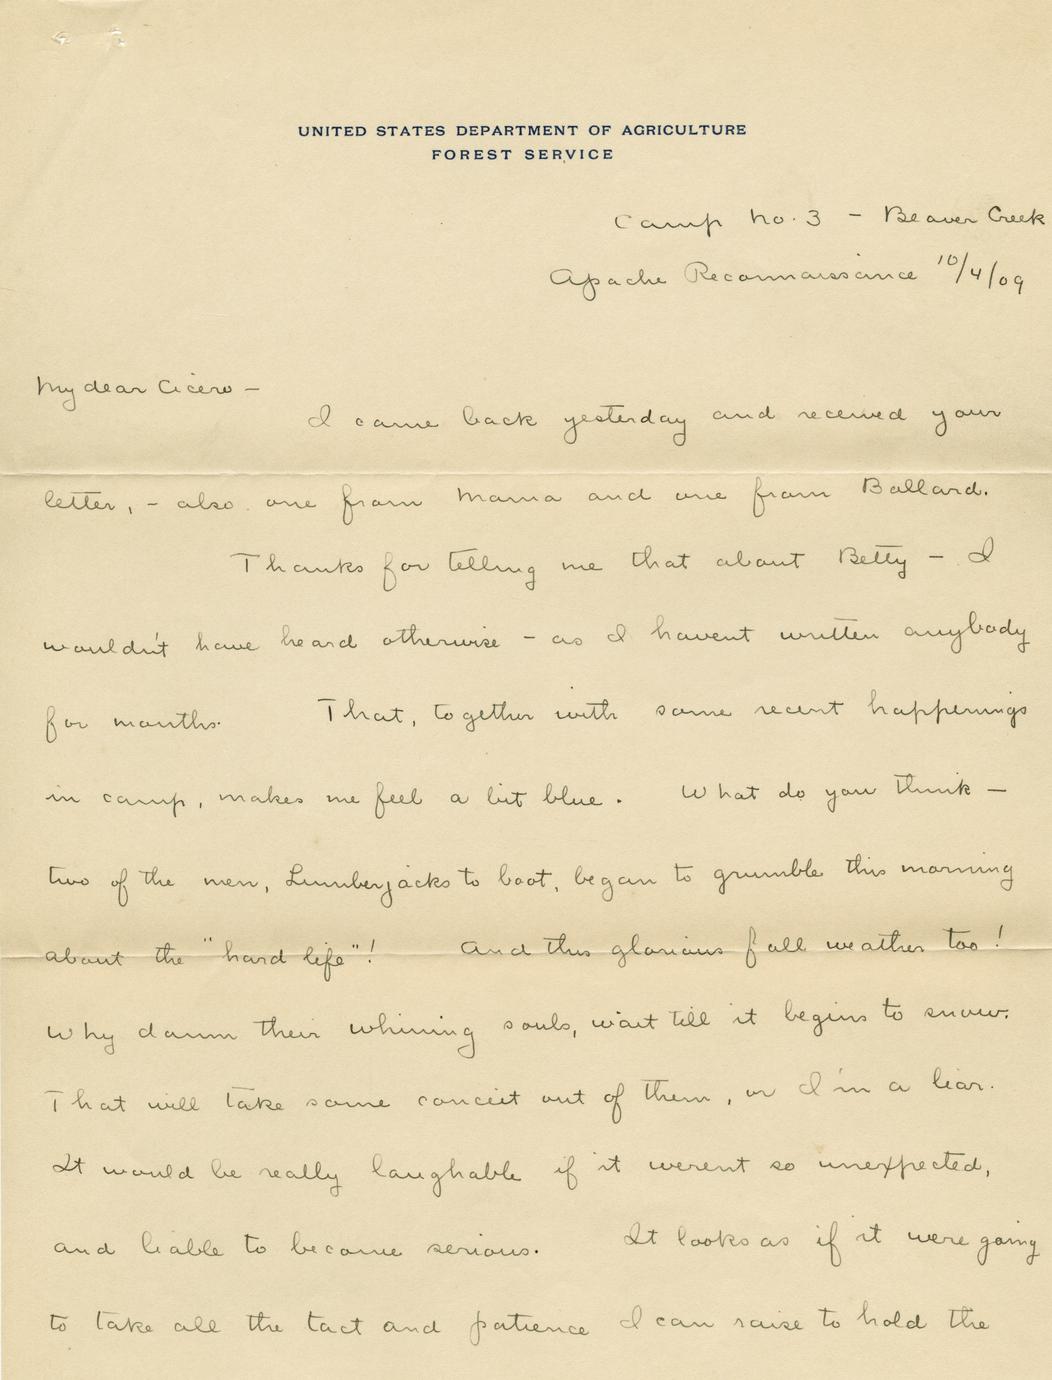 UNITED STATES DEPARTMENT OF AGRICULTURE
FOREST SERVICE
Camp No. 3 – Beaver Creek
Apache Reconnaissance 10/4/09
My dear Cicero –
I came back yesterday and received your
letter, – also one from Mama and one from Ballard.
Thanks for telling me that about Betty – I
wouldn't have heard otherwise – as I havent written anybody
for months. That, together with some recent happenings
in camp, makes me feel a bit blue. What do you think –
two of the men, Lumberjacks to boot, began to grumble this morning
about the "hard life"! And this glorious fall weather too!
Why damn their whining souls, wait till it begins to snow.
That will take some conceit out of them, or I'm a liar.
It would be really laughable if it werent so unexpected,
and liable to become serious. It looks as if it were going
to take all the tact and patience I can raise to hold the